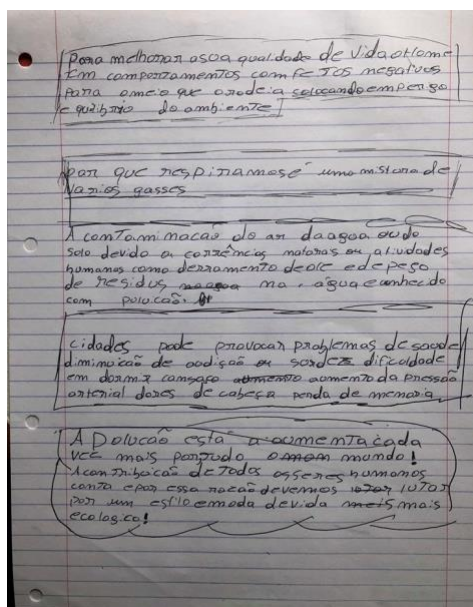 para melhorar a sua qualidade de vida o home
Em comportamentos com fetos negativos
para o meio que o rodeia colocando em perigo
e quzbrio do ambiente
o ar que respiramos é uma mistura de
varios gasses
A contaminacão do ar da agua ou do
solo devido a corrências naturas ou atividades
humanos como derramento de ole e depeço
de residus na. agua e conhecido
com polucão.
cidades pode provocar problemas de saode
diminoicão de aodição ou sordez dificoldade
em dormir camsaço aomento da pressão
arterial dores de cabeça perda de memoria
A Polucão está a aomenta cada
vez mais por todo o mundo!
A contriboicão de todos os seres humanos
conta e por essa racão devemos lutar
por um estilo e moda de vida mais
ecologico!